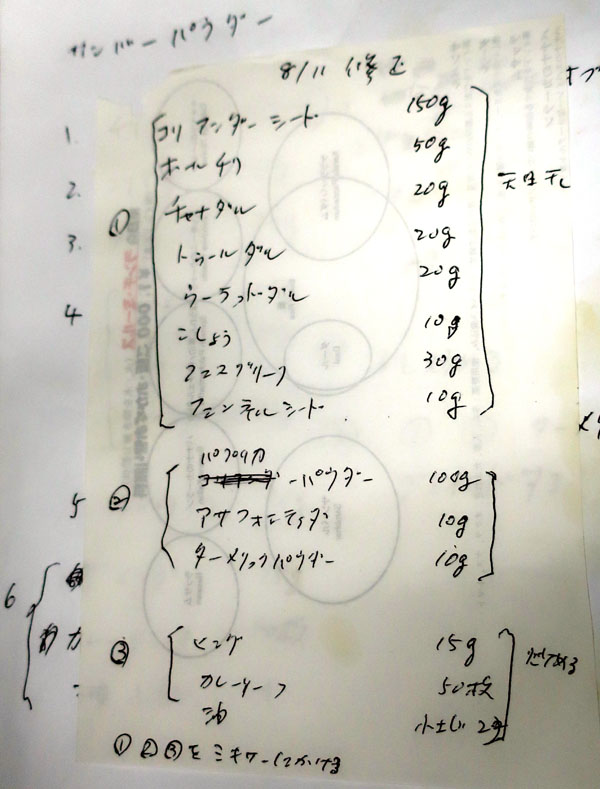 サンバーパウダー
8/11 修正
1.
2.
3.
4
5
6
①
コリアンダーシード 150g
ホールチリ 50g
チャナダル 20g
トゥールダル 20g
ウーラットダル 20g
こしょう 10g
フェヌグリーク 30g
フェンネルシード 10g
天日干し
②
パプリカ
ーパウダー 100g
アサフォエティダ 10g
ターメリックパウダー 10g
③
ヒング 15g
カレーリーフ 50枚
油 小さじ2
①②③をミキサーにかける